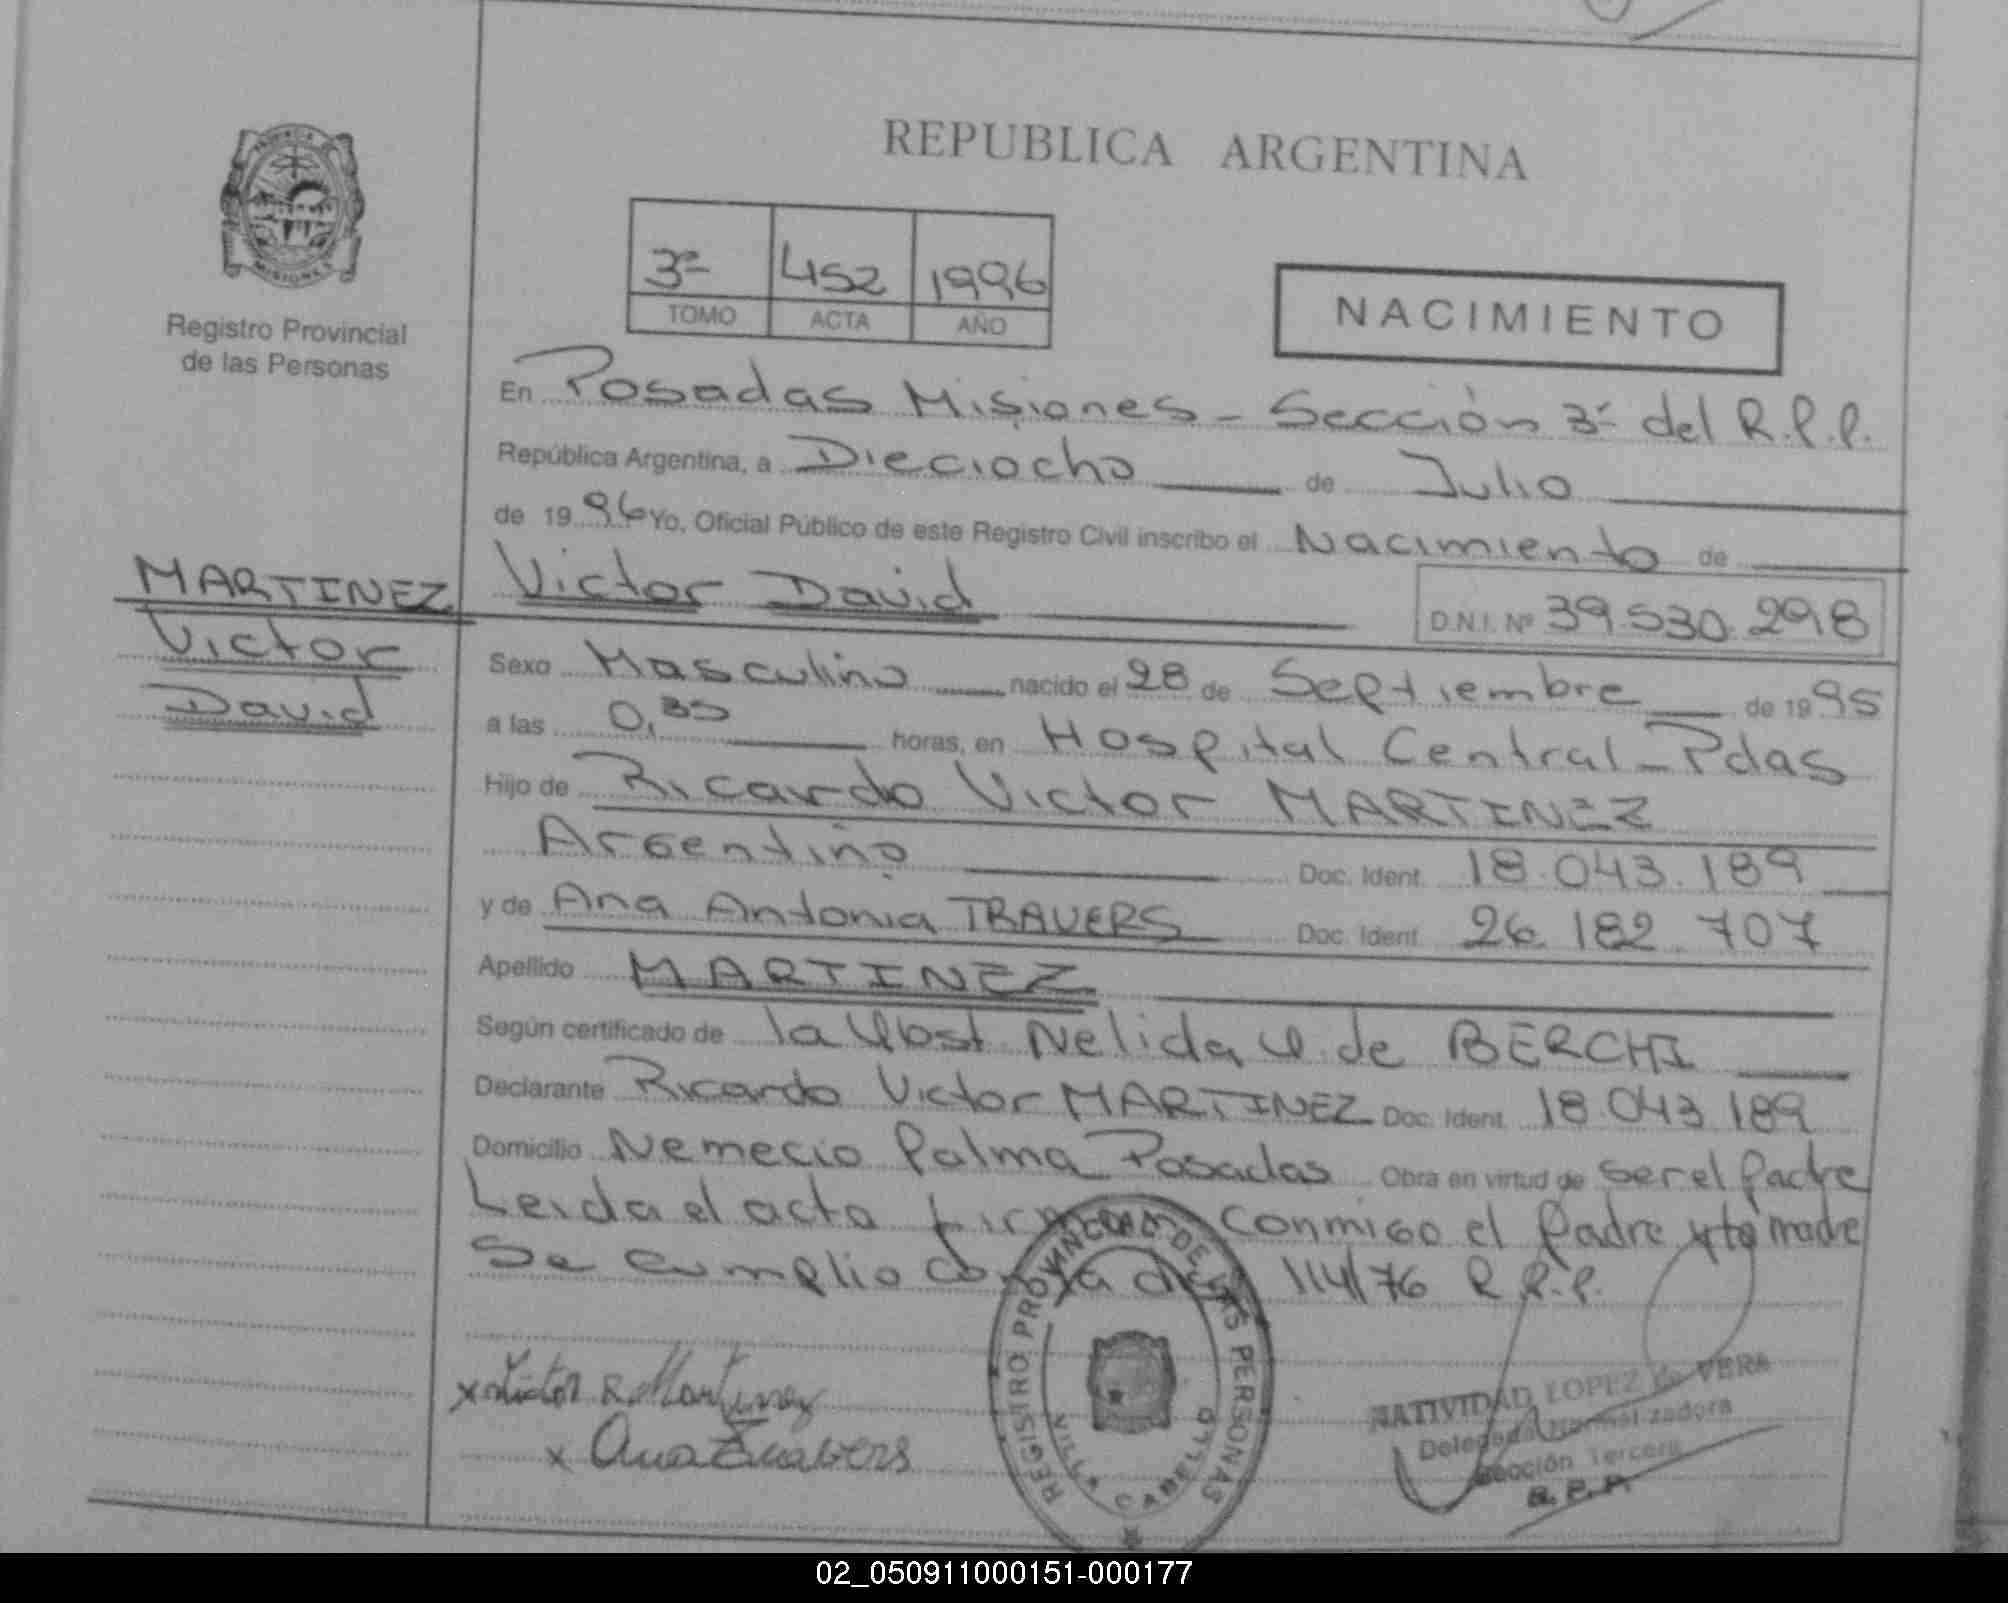 REPUBLICA ARGENTINA
PROVINCIA DE MISIONES
Registro Provincial
de las Personas
3ª 452 1996
TOMO ACTA AÑO
NACIMIENTO
En Posadas Misiones - Sección 3ª del R.P.P.
República Argentina, a Dieciocho de Julio
de 1996 Yo, Oficial Público de este Registro Civil inscribo el Nacimiento de
MARTINEZ Victor David
D.N.I. Nº 39.530.298
Victor
David
Sexo Masculino nacido el 28 de Septiembre de 1995
a las 0,35 horas, en Hospital Central - Pdas
Hijo de Ricardo Victor MARTINEZ
Argentino Doc. Ident. 18.043.189
y de Ana Antonia TRAVERS Doc. Ident. 26.182.707
Apellido MARTINEZ
Según certificado de la Obst Nelida de BERCHI
Declarante Ricardo Victor MARTINEZ Doc. Ident. 18.043.189
Domicilio Nemecio Palma Posadas Obra en virtud de ser el Padre
Leida el acta firman conmigo el Padre y la madre
Se cumplio con la 114/76 R.P.P.
x Victor R Martinez
x Ana Travers
REGISTRO PROVINCIAL DE LAS PERSONAS
VILLA CABELLO
NATIVIDAD LOPEZ de VERA
Delegada Normalizadora
Sección Tercera
R.P.P.
02_050911000151-000177